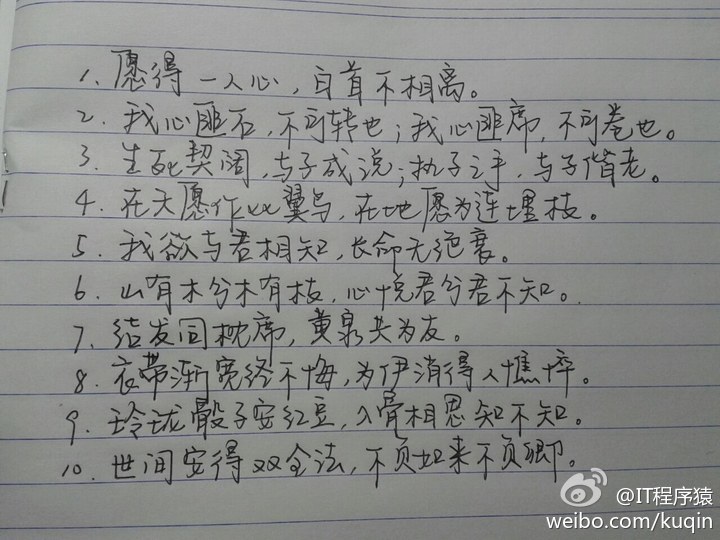 1. 愿得一人心，白首不相离。
2. 我心匪石，不可转也；我心匪席，不可卷也。
3. 生死契阔，与子成说；执子之手，与子偕老。
4. 在天愿作双翼鸟，在地愿为连理枝。
5. 我欲与君相知，长命无绝衰。
6. 山有木兮木有枝，心悦君兮君不知。
7. 结发同枕席，黄泉共为友。
8. 衣带渐宽终不悔，为伊消得人憔悴。
9. 玲珑骰子安红豆，入骨相思知不知。
10. 世间安得双全法，不负如来不负卿。
@IT程序猿
weibo.com/kuqin